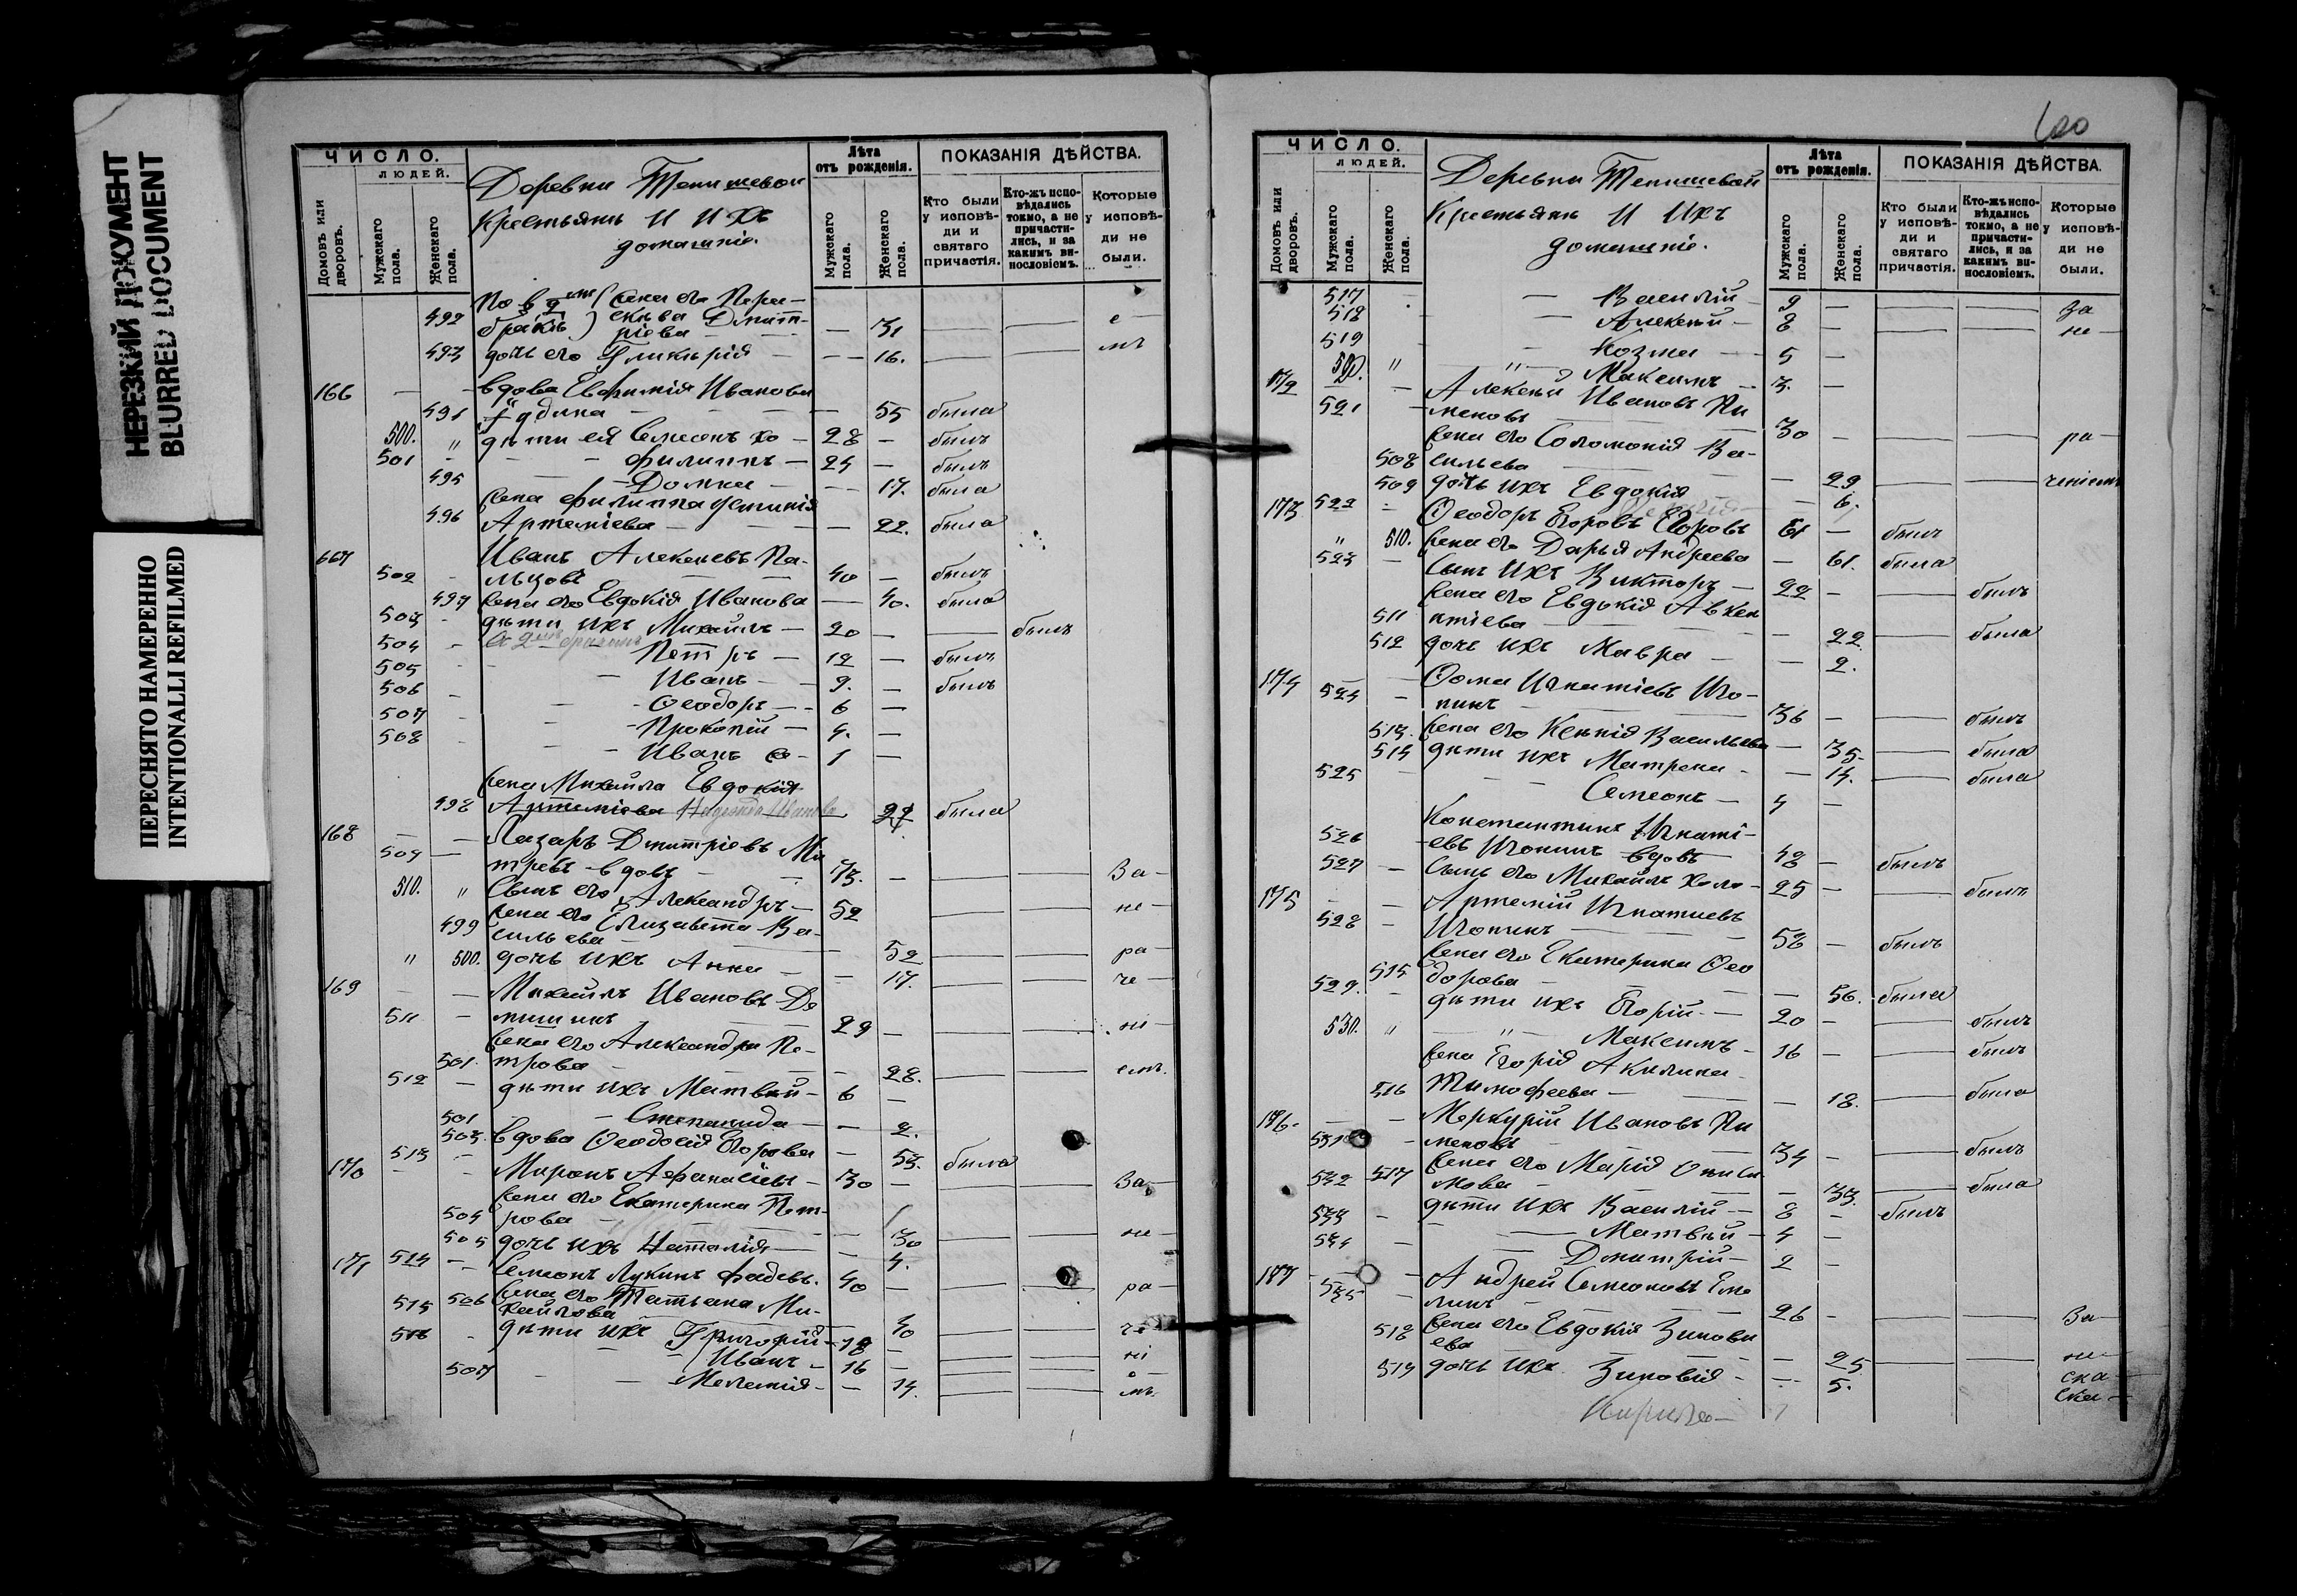 НЕРЕЗКИЙ ДОКУМЕНТ
BLURRED DOCUMENT
ПЕРЕСНЯТО НАМЕРЕННО
INTENTIONALLI REFILMED
ЧИСЛО.
ЛЮДЕЙ.
Домовъ или дворовъ.
Мужскаго пола.
Женскаго пола.
Деревни Тенишевой
Крестьянъ и ихъ
домашніе.
Лѣта
отъ рожденія.
Мужскаго пола.
Женскаго пола.
ПОКАЗАНІЯ ДѢЙСТВА.
Кто были у исповѣди и святаго причастія.
Кто-жъ исповѣдались токмо, а не причастились, и за какимъ винословіемъ.
Которые у исповѣди не были.
По 2 жена его Пара-
492 бракѣ скева Дмит-
ріева — 31 е
493 дочь его Гликерія — 16. мъ
166 вдова Евфимія Иванова
494 — 55 была
500. " дѣти ея Симеонъ хо — 28 — былъ
501 Филиппъ — 24 — былъ
495 Домна — 17. была
жена Филиппа
496 Артеміева — 22. была
667 Иванъ Алексѣевъ Па-
502 льцовъ 40 — былъ
497 жена его Евдокія Иванова — 40. была
503 дѣти ихъ Михаилъ — 20 — былъ
504 Петръ — 12 — былъ
505 Иванъ — 9. — былъ
506 Ѳеодоръ — 6 —
507 Прокопій — 4. —
508 Иванъ — 1 —
жена Михаила Евдокія
498 Артеміева Иванова была
168 Лазарь Дмитріевъ Ми
509 тревъ вдовъ 73. — За
510. " Сынъ его Александръ — 52 не
жена его Елизавета Ва-
499 сильева — 52 ра
" 500. дочь ихъ Анна — 17. че
169 Михаилъ Ивановъ Де
511 мишинъ 29 — ні
жена его Александра Пе-
501. трова — 28. емъ.
512 дѣти ихъ Матвѣй — 6 —
501 Степанида — 2.
503. вдова Ѳеодосія Егорова — 53. была
513
170 Миронъ Аѳанасіевъ — 30 — За
жена его Екатерина Пет-
504 рова — 30 не
505 дочь ихъ Наталія — 4.
171 514 Симеонъ Лукинъ Фадѣвъ. 40 — ра
506 жена его Татьяна Ми-
515 хайлова 40 че
516 дѣти ихъ Григорій — 18 — ні
Иванъ — 16 — е
507 Мелетія — 14. мъ.
ЧИСЛО.
ЛЮДЕЙ.
Домовъ или дворовъ.
Мужскаго пола.
Женскаго пола.
Деревни Тенишевой
Крестьянъ и ихъ
домашніе.
Лѣта
отъ рожденія.
Мужскаго пола.
Женскаго пола.
ПОКАЗАНІЯ ДѢЙСТВА.
Кто были у исповѣди и святаго причастія.
Кто-жъ исповѣдались токмо, а не причастились, и за какимъ винословіемъ.
Которые у исповѣди не были.
517 Василій — 9 — За
518 Алексѣй — 8 — не
519 Козма — 5 —
520. " " Максимъ — 3. —
172 Алексѣй Ивановъ Пи
521 меновъ 30 — ра
жена его Соломонія Ва-
508 сильева — 29 ченіемъ
509 дочь ихъ Евдокія — 6.
173 522 Ѳеодоръ Егоровъ Егоровъ 61 — былъ
" 510. жена его Дарья Андреева — 61. была
523 Сынъ ихъ Викторъ — 22 — былъ
жена его Евдокія Авксен
511 нтіева — 22 была
512 дочь ихъ Мавра — 2.
174 Ѳома Игнатіевъ Иго-
524 нинъ 36 — былъ
513. жена его Ксенія Васильева — 35 была
514 дѣти ихъ Матрена — 14. была
525 Симеонъ — 4 —
Константинъ Игнаті-
526 евъ Игонинъ вдовъ 48 — былъ
527 Сынъ его Михаилъ холо — 25 — былъ
175 Артемій Игнатиевъ
528 Игонинъ 58 — былъ
жена его Екатерина Ѳео
515 дорова — 56. была
529. дѣти ихъ Егорій — 20 — былъ
530. " " Максимъ — 16 — былъ
жена Егорія Акилина
516 Тимофеева — 18. была
176. Меркурій Ивановъ Пи
531 меновъ 34 — былъ
517 жена его Марія Ониси
532 мова — 33. была
533 дѣти ихъ Василій — 8 — былъ
534 Матвѣй — 4 —
Дмитрій — 2 —
177 Андрей Симеоновъ Еме
535 линъ 26 — За
518 жена его Евдокія Зиновьи
ева — 25 не
519 дочь ихъ Зиновія — 5. ска